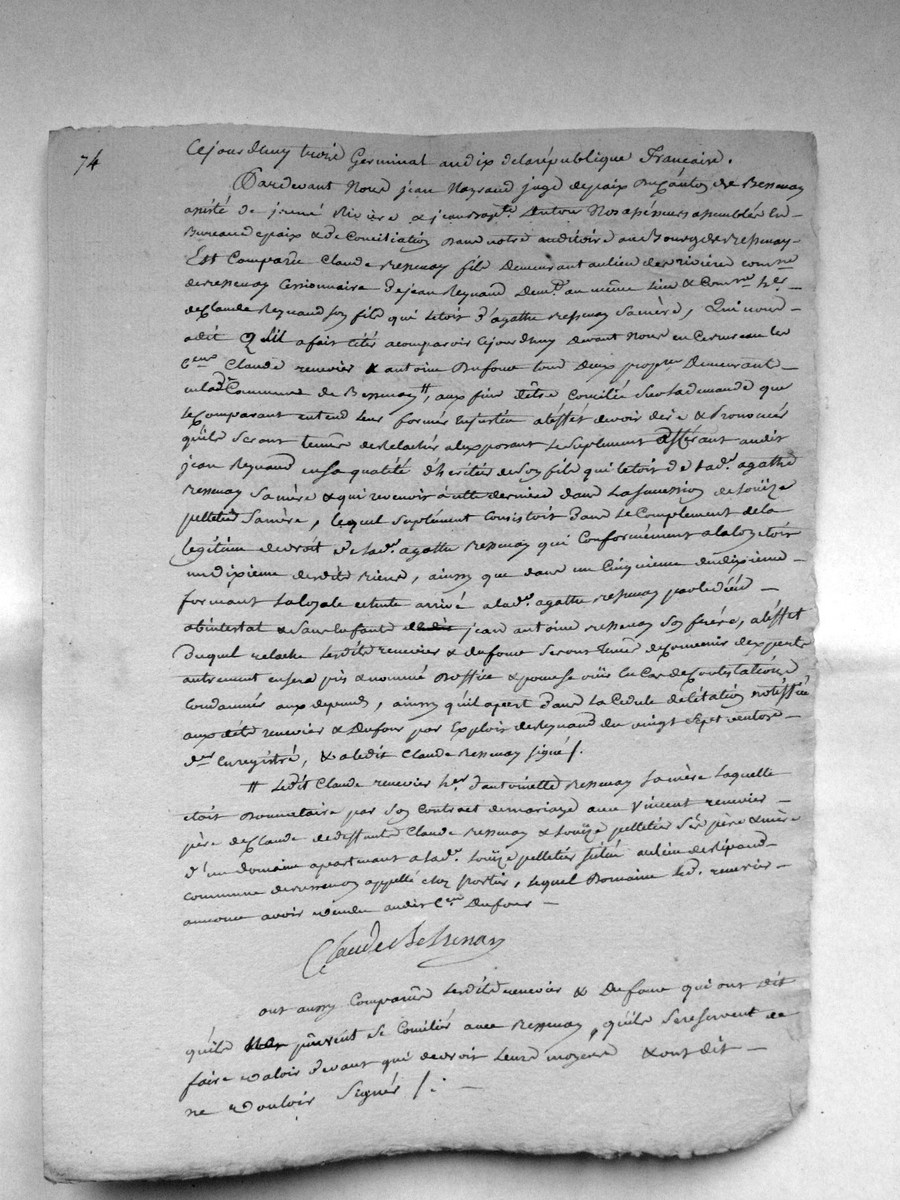 74
Cejourdhuy troisè Germinal an dix de la république Francaise.
Pardevant Nous jean Raynaud juge depaix du Canton de Bessenay
assisté de jeune Rivière & jean Nos assesseurs assemblés En
Bureau depaix & de Conciliation dans notre auditoire au Bourg de Bessenay
Est Comparu Claude Bessenay fils demeurant au lieu de rivière comne
de Bessenay Cessionnaire de jean Reynaud demt au même lieu & Comne her
de Claude Reynaud son fils qui letoit d'agathe Bessenay sa mère, Qui nous
adit Quil a fait citér a comparoir Cejourdhuy devant nous en Ce bureau les
Cens Claude renevier & antoine Dufour tous deux propres demeurant
en lade Commune de Bessenay #, aux fins d'être Conciliés Sur la demande que
le Comparant entend leur former a l'effet devoir dire & Prononcér
quils Seront tenus de relachér a l'exposant le Suplement afférant audit
jean Reynaud en sa qualité d'héritier de Son fils qui letoit de lade agathe
Bessenay Sa mère & qui revenoit à cette dernière dans la Succession de Loüize
pelletiér Sa mère, lequel Suplément Consistoit dans le Complement de la
legitime de droit de lade agathe Bessenay qui Conformément a la loy etoit
un dixieme desdits Biens, ainsy que dans un Cinquieme du dixieme
formant la loyale echute arrivé a lade agathe Bessenay par le déces
abintestat & Sans Enfants jean antoine Bessenay Son frère, a l'effet
duquel relache lesdits renevier & dufour Seront tenus de Convenir d'experts
autrement en Sera pris & nommé d'office & pour se voir en Cas de Contestation
Condamnés aux depends, ainsy quil apert dans la Cedule de Citation notiffiée
aux dits renevier & Dufour par Exploit de Reynaud du vingt Sept ventose
der Enregistré, & a ledit Claude Bessenay Signé /.
# ledit Claude renevier her d'antoinette Bessenay Sa mère laquelle
étoit Donnataire par Son Contract de mariage avec Vincent renevier
père de Claude de deffunts Claude Bessenay & Loüize pelletiér Sés père & mère
d'un domaine apartenant a lade Loüize pelletiér Situé au lieu de
commune de appellé chez portiér, lequel Domaine led. renevier
annonce avoir vendu audit Cen Dufour
Claude Bessenay
ont aussy Comparus lesdits renevier & Dufour qui ont dit
quils ne peuvent Se Conciliér avec Bessenay, quils Sereservent de
faire valoir devant qui de droit leurs moyens & ont dit
ne Vouloir Signér /.